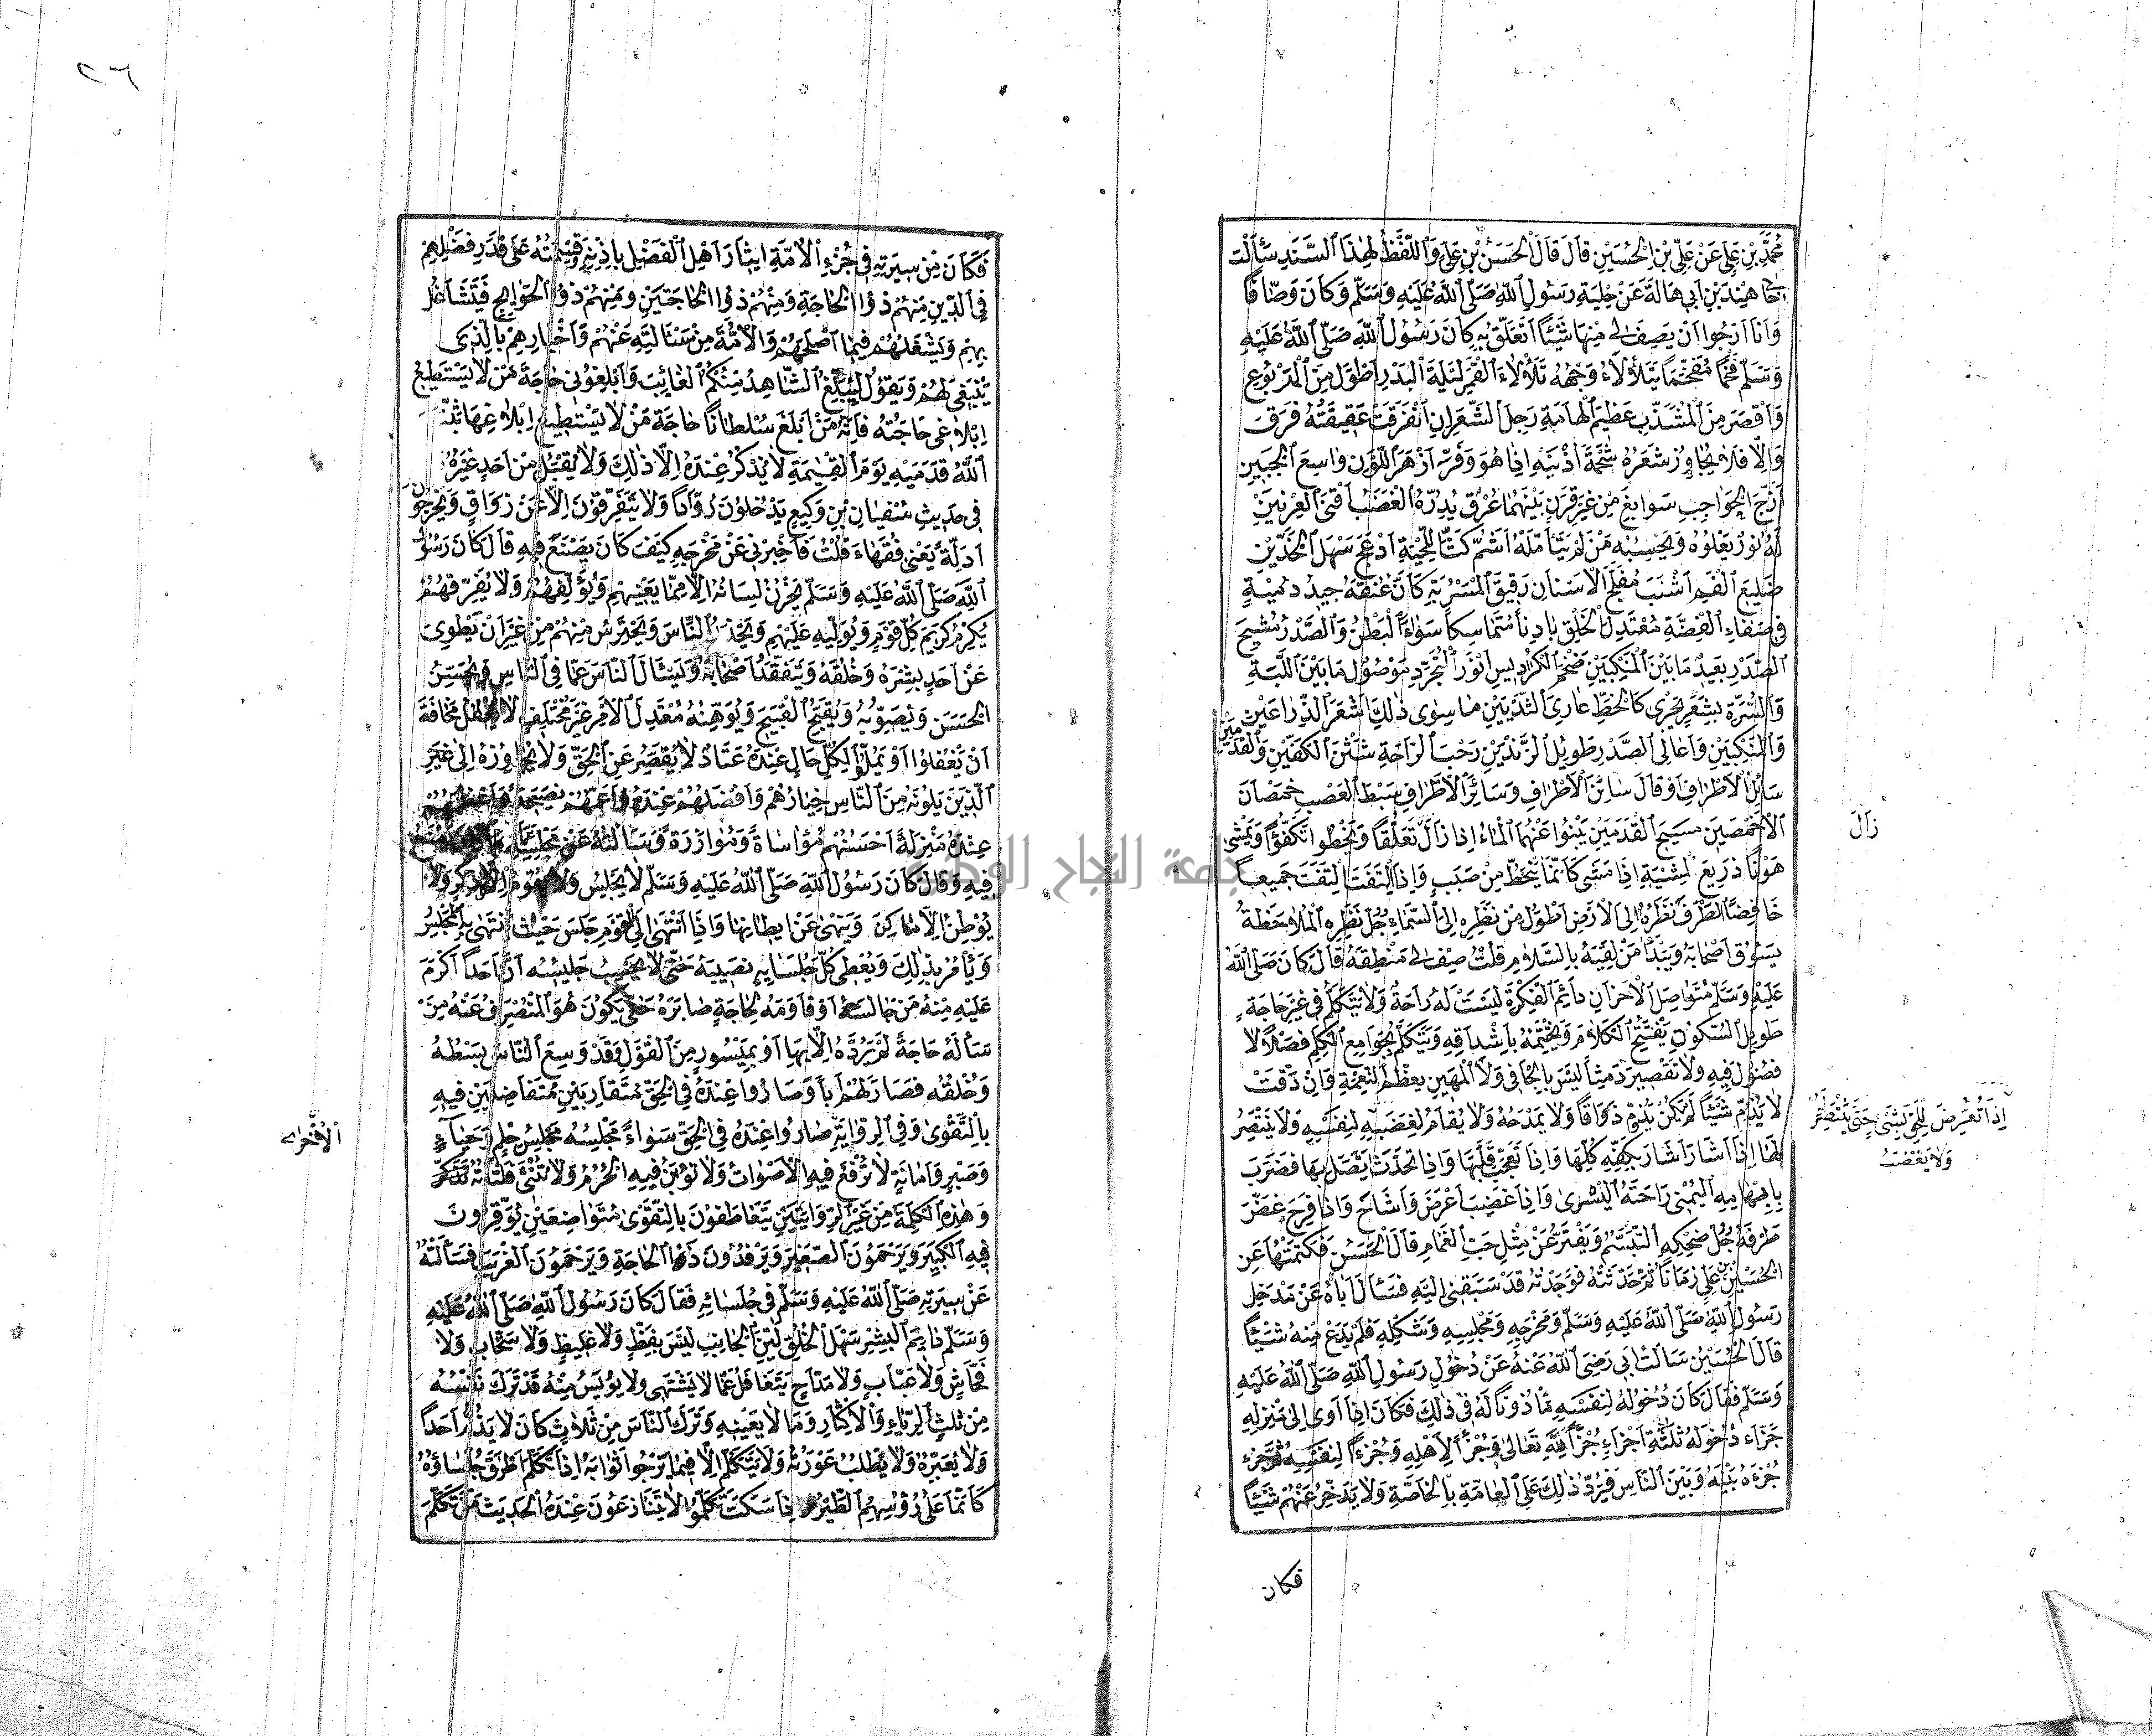 مُحَمَّدِ بْنِ عَلِيٍّ عَنْ عَلِيِّ بْنِ الْحُسَيْنِ قَالَ قَالَ الْحَسَنُ بْنُ عَلِيٍّ وَاللَّفْظُ لِهٰذَا السَّنَدِ سَأَلْتُ
خَالِي هِنْدَ بْنَ أَبِي هَالَةَ عَنْ حِلْيَةِ رَسُولِ اللَّهِ صَلَّى اللَّهُ عَلَيْهِ وَسَلَّمَ وَكَانَ وَصَّافًا
وَأَنَا أَرْجُوا أَنْ يَصِفَ لِي مِنْهَا شَيْئًا أَتَعَلَّقُ بِهِ كَانَ رَسُولُ اللَّهِ صَلَّى اللَّهُ عَلَيْهِ
وَسَلَّمَ فَخْمًا مُفَخَّمًا يَتَلَأْلَأُ وَجْهُهُ تَلَأْلُأَ الْقَمَرِ لَيْلَةَ الْبَدْرِ أَطْوَلَ مِنَ الْمَرْبُوعِ
وَأَقْصَرَ مِنَ الْمُشَذَّبِ عَظِيمَ الْهَامَةِ رَجِلَ الشَّعَرِ إِنِ انْفَرَقَتْ عَقِيقَتُهُ فَرَقَ
وَإِلَّا فَلَا يُجَاوِزُ شَعَرُهُ شَحْمَةَ أُذُنَيْهِ إِذَا هُوَ وَفَّرَهُ أَزْهَرَ اللَّوْنِ وَاسِعَ الْجَبِينِ
أَزَجَّ الْحَوَاجِبِ سَوَابِغَ مِنْ غَيْرِ قَرَنٍ بَيْنَهُمَا عِرْقٌ يُدِرُّهُ الْغَضَبُ أَقْنَى الْعِرْنِينِ
لَهُ نُورٌ يَعْلُوهُ وَيَحْسِبُهُ مَنْ لَمْ يَتَأَمَّلْهُ أَشَمَّ كَثَّ اللِّحْيَةِ أَدْعَجَ سَهْلَ الْخَدَّيْنِ
ضَلِيعَ الْفَمِ أَشْنَبَ مُفَلَّجَ الْأَسْنَانِ دَقِيقَ الْمَسْرُبَةِ كَأَنَّ عُنُقَهُ جِيدُ دُمْيَةٍ
فِي صَفَاءِ الْفِضَّةِ مُعْتَدِلَ الْخَلْقِ بَادِنًا مُتَمَاسِكًا سَوَاءَ الْبَطْنِ وَالصَّدْرِ مُشِيحَ
الصَّدْرِ بَعِيدَ مَا بَيْنَ الْمَنْكِبَيْنِ ضَخْمَ الْكَرَادِيسِ أَنْوَرَ الْمُتَجَرَّدِ مَوْصُولَ مَا بَيْنَ اللَّبَّةِ
وَالسُّرَّةِ بِشَعَرٍ يَجْرِي كَالْخَطِّ عَارِيَ الثَّدْيَيْنِ مَا سِوَى ذٰلِكَ أَشْعَرَ الذِّرَاعَيْنِ
وَالْمَنْكِبَيْنِ وَأَعَالِي الصَّدْرِ طَوِيلَ الزَّنْدَيْنِ رَحْبَ الرَّاحَةِ شَثْنَ الْكَفَّيْنِ وَالْقَدَمَيْنِ
سَائِلَ الْأَطْرَافِ أَوْ قَالَ سَائِنَ الْأَطْرَافِ وَسَائِرَ الْأَطْرَافِ سَبْطَ الْعَصَبِ خُمْصَانَ
الْأَخْمَصَيْنِ مَسِيحَ الْقَدَمَيْنِ يَنْبُوا عَنْهُمَا الْمَاءُ إِذَا زَالَ تَقَلُّعًا وَيَخْطُوا تَكَفُّؤًا وَيَمْشِي
زَالَ
هَوْنًا ذَرِيعَ الْمِشْيَةِ إِذَا مَشَى كَأَنَّمَا يَنْحَطُّ مِنْ صَبَبٍ وَإِذَا الْتَفَتَ الْتَفَتَ جَمِيعًا
خَافِضَ الطَّرْفِ نَظَرُهُ إِلَى الْأَرْضِ أَطْوَلُ مِنْ نَظَرِهِ إِلَى السَّمَاءِ جُلُّ نَظَرِهِ الْمُلَاحَظَةُ
يَسُوقُ أَصْحَابَهُ وَيَبْدَأُ مَنْ لَقِيَهُ بِالسَّلَامِ قُلْتُ صِفْ لِي مَنْطِقَهُ قَالَ كَانَ صَلَّى اللَّهُ
عَلَيْهِ وَسَلَّمَ مُتَوَاصِلَ الْأَحْزَانِ دَائِمَ الْفِكْرَةِ لَيْسَتْ لَهُ رَاحَةٌ وَلَا يَتَكَلَّمُ فِي غَيْرِ حَاجَةٍ
طَوِيلَ السُّكُونِ يَفْتَتِحُ الْكَلَامَ وَيَخْتِمُهُ بِأَشْدَاقِهِ وَيَتَكَلَّمُ بِجَوَامِعِ الْكَلِمِ فَصْلًا لَا
فُضُولَ فِيهِ وَلَا تَقْصِيرَ دَمِثًا لَيْسَ بِالْجَافِي وَلَا الْمَهِينِ يُعَظِّمُ النِّعْمَةَ وَإِنْ دَقَّتْ
لَا يَذُمُّ شَيْئًا لَمْ يَكُنْ يَذُمُّ ذَوَاقًا وَلَا يَمْدَحُهُ وَلَا يُقَامُ لِغَضَبِهِ لِنَفْسِهِ وَلَا يَنْتَصِرُ
إِذَا تُعُرِّضَ لِلْحَقِّ بِشَيْءٍ حَتَّى يَنْتَصِرَ
وَلَا يَغْضَبُ
لَهَا إِذَا أَشَارَ أَشَارَ بِكَفِّهِ كُلِّهَا وَإِذَا تَعَجَّبَ قَلَبَهَا وَإِذَا تَحَدَّثَ اتَّصَلَ بِهَا فَضَرَبَ
بِإِبْهَامِهِ الْيُمْنَى رَاحَتَهُ الْيُسْرَى وَإِذَا غَضِبَ أَعْرَضَ وَأَشَاحَ وَإِذَا فَرِحَ غَضَّ
طَرْفَهُ جُلُّ ضِحْكِهِ التَّبَسُّمُ وَيَفْتَرُّ عَنْ مِثْلِ حَبِّ الْغَمَامِ قَالَ الْحَسَنُ فَكَتَمْتُهَا عَنِ
الْحُسَيْنِ بْنِ عَلِيٍّ زَمَانًا ثُمَّ حَدَّثْتُهُ فَوَجَدْتُهُ قَدْ سَبَقَنِي إِلَيْهِ فَسَأَلَ أَبَاهُ عَنْ مَدْخَلِ
رَسُولِ اللَّهِ صَلَّى اللَّهُ عَلَيْهِ وَسَلَّمَ وَمَخْرَجِهِ وَمَجْلِسِهِ وَشَكْلِهِ فَلَمْ يَدَعْ مِنْهُ شَيْئًا
قَالَ الْحُسَيْنُ سَأَلْتُ أَبِي رَضِيَ اللَّهُ عَنْهُ عَنْ دُخُولِ رَسُولِ اللَّهِ صَلَّى اللَّهُ عَلَيْهِ
وَسَلَّمَ فَقَالَ كَانَ دُخُولُهُ لِنَفْسِهِ مَأْذُونًا لَهُ فِي ذٰلِكَ فَكَانَ إِذَا أَوَى إِلَى مَنْزِلِهِ
جَزَّأَ دُخُولَهُ ثَلٰثَةَ أَجْزَاءٍ جُزْءًا لِلَّهِ تَعَالَى وَجُزْءًا لِأَهْلِهِ وَجُزْءًا لِنَفْسِهِ ثُمَّ جَزَّءَ
جُزْءَهُ بَيْنَهُ وَبَيْنَ النَّاسِ فَيَرُدُّ ذٰلِكَ عَلَى الْعَامَّةِ بِالْخَاصَّةِ وَلَا يَدَّخِرُ عَنْهُمْ شَيْئًا
فكان
٢٦
فَكَانَ مِنْ سِيرَتِهِ فِي جُزْءِ الْأُمَّةِ إِيثَارُ أَهْلِ الْفَضْلِ بِإِذْنِهِ وَقِسْمَتُهُ عَلَى قَدْرِ فَضْلِهِمْ
فِي الدِّينِ مِنْهُمْ ذُوا الْحَاجَةِ وَمِنْهُمْ ذُوا الْحَاجَتَيْنِ وَمِنْهُمْ ذُوا الْحَوَائِجِ فَيَتَشَاغَلُ
بِهِمْ وَيَشْغَلُهُمْ فِيمَا أَصْلَحَهُمْ وَالْأُمَّةَ مِنْ مَسْأَلَتِهِ عَنْهُمْ وَأَخْبَارِهِمْ بِالَّذِي
يَنْبَغِي لَهُمْ وَيَقُولُ لِيُبَلِّغِ الشَّاهِدُ مِنْكُمُ الْغَائِبَ وَأَبْلِغُونِي حَاجَةَ مَنْ لَا يَسْتَطِيعُ
إِبْلَاغِي حَاجَتَهُ فَإِنَّهُ مَنْ أَبْلَغَ سُلْطَانًا حَاجَةَ مَنْ لَا يَسْتَطِيعُ إِبْلَاغَهَا ثَبَّتَ
اللَّهُ قَدَمَيْهِ يَوْمَ الْقِيٰمَةِ لَا يُذْكَرُ عِنْدَهُ إِلَّا ذٰلِكَ وَلَا يُقْبَلُ مِنْ أَحَدٍ غَيْرُهُ
فِي حَدِيثِ سُفْيَانَ بْنِ وَكِيعٍ يَدْخُلُونَ رُوَّادًا وَلَا يَتَفَرَّقُونَ إِلَّا عَنْ ذَوَاقٍ وَيَخْرُجُونَ
أَدِلَّةً يَعْنِي فُقَهَاءَ قُلْتُ فَأَخْبِرْنِي عَنْ مَخْرَجِهِ كَيْفَ كَانَ يَصْنَعُ فِيهِ قَالَ كَانَ رَسُولُ
اللَّهِ صَلَّى اللَّهُ عَلَيْهِ وَسَلَّمَ يَخْزُنُ لِسَانَهُ إِلَّا مِمَّا يَعْنِيهِمْ وَيُؤَلِّفُهُمْ وَلَا يُفَرِّقُهُمْ
يُكْرِمُ كَرِيمَ كُلِّ قَوْمٍ وَيُوَلِّيهِ عَلَيْهِمْ وَيَحْذَرُ النَّاسَ وَيَحْتَرِسُ مِنْهُمْ مِنْ غَيْرِ أَنْ يَطْوِيَ
عَنْ أَحَدٍ بِشْرَهُ وَخُلُقَهُ وَيَتَفَقَّدُ أَصْحَابَهُ وَيَسْأَلُ النَّاسَ عَمَّا فِي النَّاسِ وَيُحَسِّنُ
الْحَسَنَ وَيُصَوِّبُهُ وَيُقَبِّحُ الْقَبِيحَ وَيُوَهِّنُهُ مُعْتَدِلَ الْأَمْرِ غَيْرَ مُخْتَلِفٍ لَا يَغْفُلُ مَخَافَةَ
أَنْ يَغْفُلُوا أَوْ يَمَلُّوا لِكُلِّ حَالٍ عِنْدَهُ عَتَادٌ لَا يُقَصِّرُ عَنِ الْحَقِّ وَلَا يُجَاوِزُهُ إِلَى غَيْرِهِ
الَّذِينَ يَلُونَهُ مِنَ النَّاسِ خِيَارُهُمْ وَأَفْضَلُهُمْ عِنْدَهُ أَعَمُّهُمْ نَصِيحَةً وَأَعْظَمُهُمْ
عِنْدَهُ مَنْزِلَةً أَحْسَنُهُمْ مُوَاسَاةً وَمُوَازَرَةً فَسَأَلْتُهُ عَنْ مَجْلِسِهِ
فِيهِ وَقَالَ كَانَ رَسُولُ اللَّهِ صَلَّى اللَّهُ عَلَيْهِ وَسَلَّمَ لَا يَجْلِسُ وَلَا يَقُومُ إِلَّا ذِكْرٍ وَلَا
يُوطِنُ الْأَمَاكِنَ وَيَنْهَى عَنْ إِيطَانِهَا وَإِذَا انْتَهَى إِلَى قَوْمٍ جَلَسَ حَيْثُ انْتَهَى بِهِ الْمَجْلِسُ
وَيَأْمُرُ بِذٰلِكَ وَيُعْطِي كُلَّ جُلَسَائِهِ نَصِيبَهُ حَتَّى لَا يَحْسِبُ جَلِيسُهُ أَنَّ أَحَدًا أَكْرَمَ
عَلَيْهِ مِنْهُ مَنْ جَالَسَهُ أَوْ قَاوَمَهُ لِحَاجَةٍ صَابَرَهُ حَتَّى يَكُونَ هُوَ الْمُنْصَرِفُ عَنْهُ مَنْ
سَأَلَهُ حَاجَةً لَمْ يَرُدَّهُ إِلَّا بِهَا أَوْ بِمَيْسُورٍ مِنَ الْقَوْلِ وَقَدْ وَسِعَ النَّاسَ بَسْطُهُ
وَخُلُقُهُ فَصَارَ لَهُمْ أَبًا وَصَارُوا عِنْدَهُ فِي الْحَقِّ مُتَقَارِبِينَ مُتَفَاضِلِينَ فِيهِ
بِالتَّقْوَى وَفِي الرِّوَايَةِ صَارُوا عِنْدَهُ فِي الْحَقِّ سَوَاءً مَجْلِسُهُ مَجْلِسُ حِلْمٍ وَحَيَاءٍ
الأخرى
وَصَبْرٍ وَأَمَانَةٍ لَا تُرْفَعُ فِيهِ الْأَصْوَاتُ وَلَا تُؤْبَنُ فِيهِ الْحُرَمُ وَلَا تُنْثَى فَلَتَاتُهُ
وَهٰذِهِ الْكَلِمَةُ مِنْ غَيْرِ الرِّوَايَتَيْنِ يَتَعَاطَفُونَ بِالتَّقْوَى مُتَوَاضِعِينَ يُوَقِّرُونَ
فِيهِ الْكَبِيرَ وَيَرْحَمُونَ الصَّغِيرَ وَيَرْفِدُونَ ذَا الْحَاجَةِ وَيَرْحَمُونَ الْغَرِيبَ فَسَأَلْتُهُ
عَنْ سِيرَتِهِ صَلَّى اللَّهُ عَلَيْهِ وَسَلَّمَ فِي جُلَسَائِهِ فَقَالَ كَانَ رَسُولُ اللَّهِ صَلَّى اللَّهُ عَلَيْهِ
وَسَلَّمَ دَائِمَ الْبِشْرِ سَهْلَ الْخُلُقِ لَيِّنَ الْجَانِبِ لَيْسَ بِفَظٍّ وَلَا غَلِيظٍ وَلَا سَخَّابٍ وَلَا
فَحَّاشٍ وَلَا عَيَّابٍ وَلَا مَدَّاحٍ يَتَغَافَلُ عَمَّا لَا يَشْتَهِي وَلَا يُؤْيَسُ مِنْهُ قَدْ تَرَكَ نَفْسَهُ
مِنْ ثَلٰثٍ الرِّيَاءِ وَالْإِكْثَارِ وَمَا لَا يَعْنِيهِ وَتَرَكَ النَّاسَ مِنْ ثَلَاثٍ كَانَ لَا يَذُمُّ أَحَدًا
وَلَا يُعَيِّرُهُ وَلَا يَطْلُبُ عَوْرَتَهُ وَلَا يَتَكَلَّمُ إِلَّا فِيمَا يَرْجُوا ثَوَابَهُ إِذَا تَكَلَّمَ أَطْرَقَ جُلَسَاؤُهُ
كَأَنَّمَا عَلَى رُؤُسِهِمُ الطَّيْرُ إِذَا سَكَتَ تَكَلَّمُوا لَا يَتَنَازَعُونَ عِنْدَهُ الْحَدِيثَ مَنْ تَكَلَّمَ
جامعة النجاح الوطنية